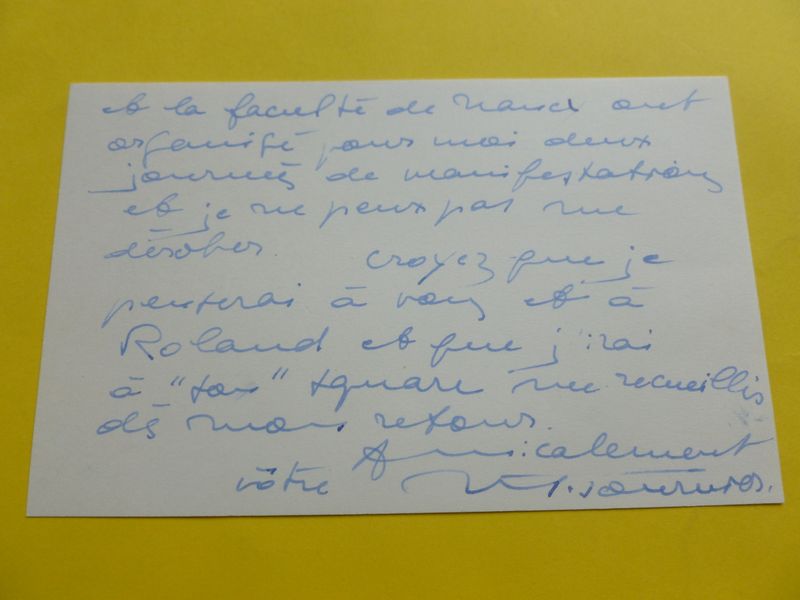 et la faculté de Nancy ont
organisé pour moi deux
journées de manifestations
et je ne peux pas me
dérober croyez que je
penserai à vous et à
Roland et que j'irai
à "son" square me recueillir
dès mon retour.
Amicalement
vôtre Fournier.